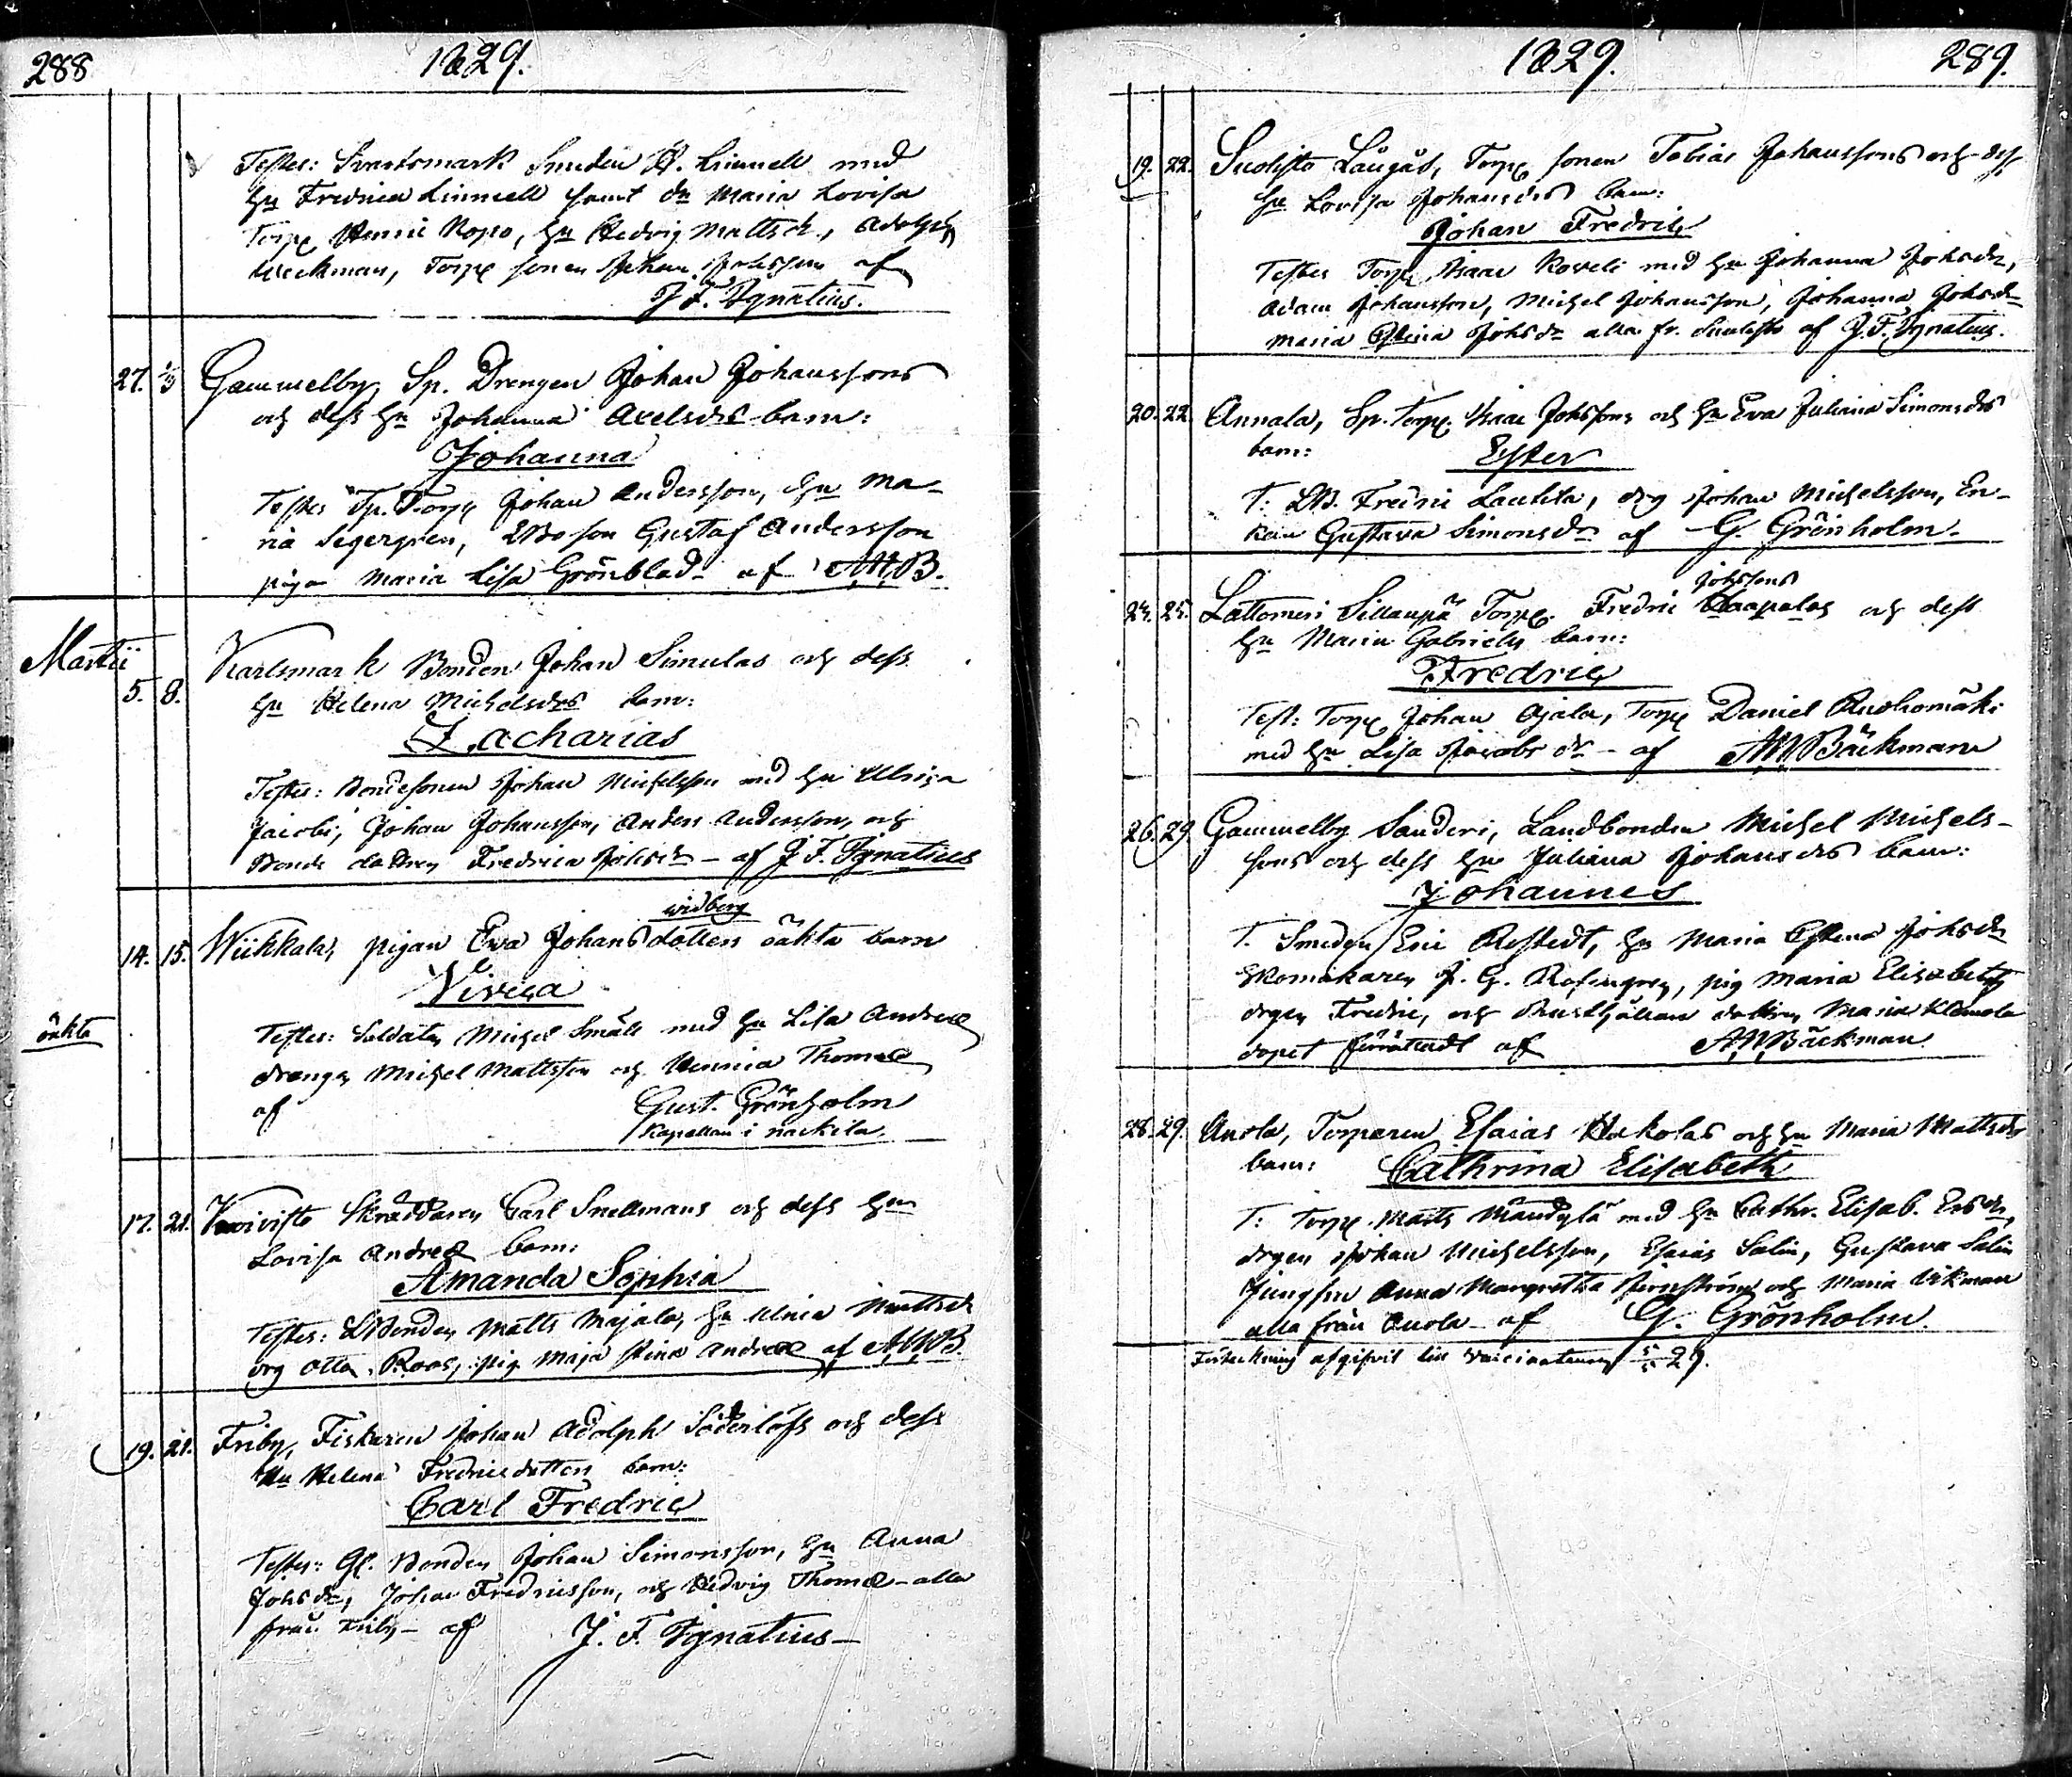 288
1829.
Testes: Svartsmark Smeden H. Linnell med
hu Fredrica Linnell samt dr Maria Lovisa
Torp Henric Ropo, hu Hedvig Mattsdr, Adolph
Weckman, Torp sonen Johan Johsson af
J. F. Ignatius.
27. 1/3 Gammelby, Sp. Drengen Johan Johanssons
och dess hu Johanna Axelsdrs barn:
Johanna
Testes Sp. Torp Johan Andersson, hu Ma-
ria Segergren, LBdeson Gustaf Andersson
pigan Maria Lisa Grönblad - af A.W.B.
Martii
5. 8. Karlsmark Bonden Johan Simulas och dess
hu Helena Michelsdrs barn:
Zacharias
Testes: Bondesonen Johan Michelsson med hu Ulrica
Jacobi, Johan Johansson, Anders Andersson, och
Bonde dottren Fredrica Johsdr - af J. F. Ignatius
widberg
14. 15. Wiikkala, pigan Eva Johansdotters oäkta barn
oäkta
Vivica
Testes: Soldaten Michel Smält med hu Lisa Andreæ
drengen Michel Mattsson och Henrica Thomæ
af Gust. Grönholm
Kapellan i nackila.
17. 21. Koivisto Skräddaren Carl Snellmans och dess hu
Lovisa Andreæ barn:
Amanda Sophia
Testes: LBonden Matts Majala, hu Ulrica Mattsdr
drg Otto Roos, pig Maja Stina Andreæ af A.W.B.
19. 21. Friby, Fiskaren Johan Adolph Söderlöfs och dess
Hu Helena Fredricsdotters barn:
Carl Fredric
Testes: Gl. Bonden Johan Simonsson, hu Anna
Johsdr, Johan Fredricsson, och Hedvig Thomæ - alla
från Friby - af J. F. Ignatius -
1829. 289.
19. 22. Suosisto Långås, Torp sonen Tobias Johanssons och dess
hu Lovisa Johansdrs barn:
Johan Fredric
Testes Torp Isaac Koveli med hu Johanna Johsdr,
Adam Johansson, Michel Johansson, Johanna Johsdr
Maria Stina Johsdr alla fr. Suosisto af J. F. Ignatius.
20. 22. Annala, Sp. Torp. Isaac Johssons och hu Eva Juliana Simonsdrs
barn: Ester
T: LB. Fredric Lautila, drg Johan Michelsson, En-
kan Gustava Simonsdr af G. Grönholm.
Johssons
24. 25. Lattomeri Sillanpä Torp. Fredric Haapalas och dess
hu Maria Gabriels barn:
Fredric
Test: Torp Johan Ojala, Torp Daniel Ruohomäki
med hu Lisa Jacobs dr - af A.W.Bäckman
26. 29. Gammelby Sanderi, Landbonden Michel Michels-
sons och dess hu Juliana Johansdrs barn:
Johannes
T. Smeden Eric Rostedt, hu Maria Stina Johsdr
Skomakaren J. G. Rosengren, pig Maria Elisabeth
drgen Fredric, och Rusthållare dottren Maria Klemola
dopet förrättadt af A.W.Bäckman
28. 29. Anola, Torparen Esaias Hakolas och hu Maria Mattsdrs
barn: Cathrina Elisabeth
T: Torp. Matts Mändylä med hu Cathr. Elisab. Ersdr,
drgen Johan Michelsson, Esaias Salin, Gustava Salin
Jungfru Anna Margretha Stjernström och Maria Vikman
alla från Anola - af G. Grönholm.
Förteckning afgifvit till Vaccinateuren 5/4 29.